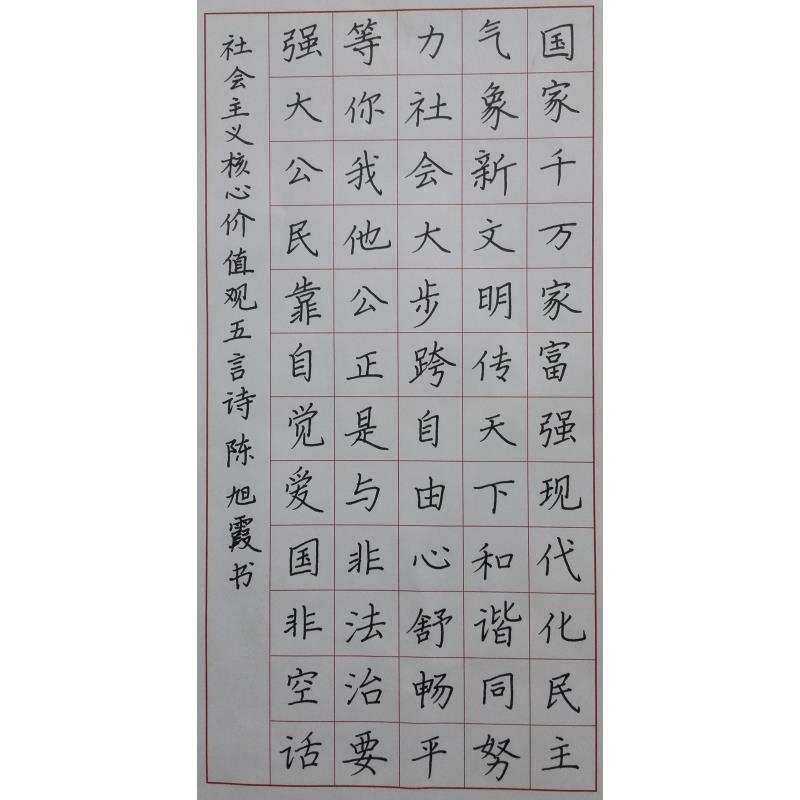 国家千万家富强现代化民主
气象新文明传天下和谐同努
力社会大步跨自由心舒畅平
等你我他公正是与非法治要
强大公民靠自觉爱国非空话
社会主义核心价值观五言诗 陈旭霞书